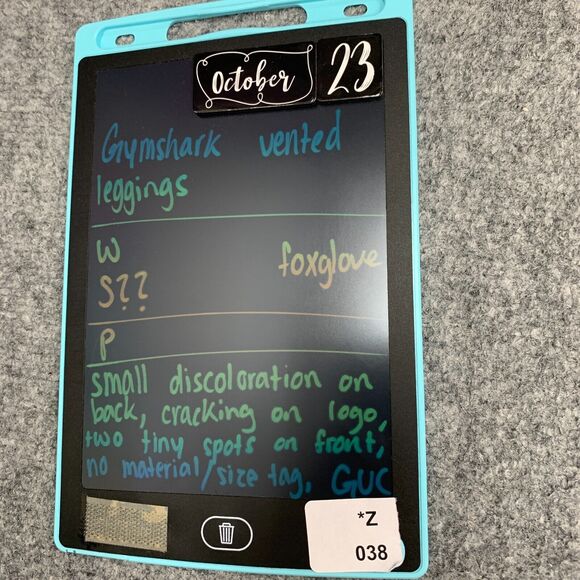 October 23
Gymshark vented
leggings
W foxglove
S??
P
small discoloration on
back, cracking on logo,
two tiny spots on front,
no material/size tag, GUC
*Z
038